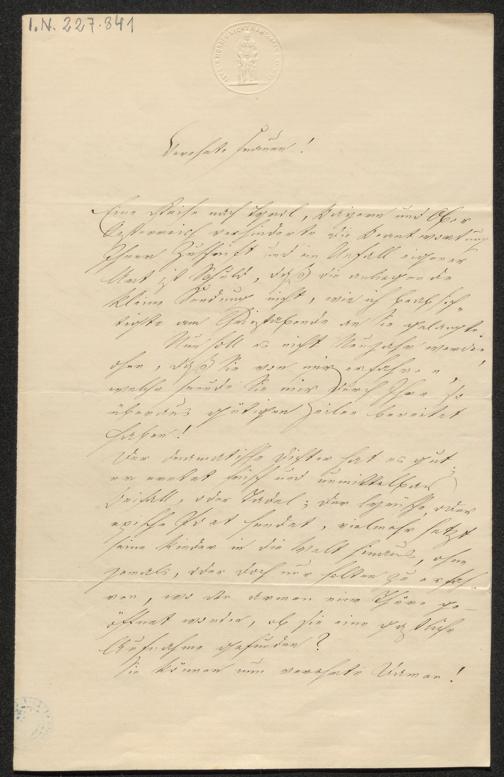 I.N. 227.841
Verehrte Frauen!
Eine Reise nach Tyrol, Bayern und Ober
Oesterreich verhinderte die Beantwortung
Ihrer Zuschrift und ein Unfall eigener
Art ist Schuld, daß die anliegende
kleine Sendung nicht, wie ich beabsich-
tigte am Christabende an Sie gelangte.
Nun soll es nicht Neujahr werden
ohne, daß Sie von mir erfahren
welche Freude Sie mir durch Ihre so
überaus gütigen Zeilen bereitet
haben!
Der dramatische Dichter hat es gut;
er erntet frisch und unmittelbar
Beifall, oder Tadel; der lyrische oder
epische Poet sendet, vielmehr setzt
seine Kinder in die Welt hinaus, ohne
jemals, oder doch nur selten zu erfah-
ren, wo den armen eine Thüre ge-
öffnet worden, ob sie eine gastliche
Aufnahme gefunden?
Sie können nun verehrte Damen!